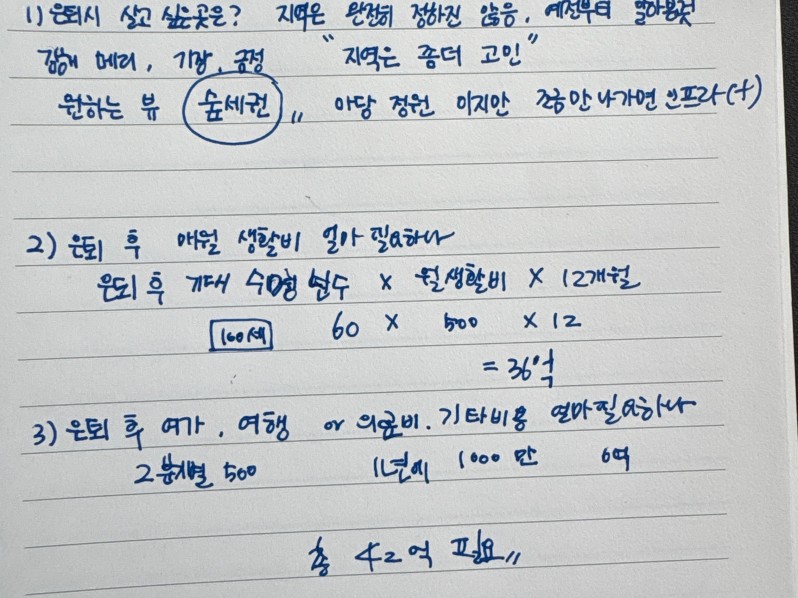 1) 은퇴시 살고 싶은곳은? 지역은 완전히 정하진 않음. 예전부터 알아본것
김해 메리, 기장, 금정 "지역은 좀더 고민"
원하는 뷰 숲세권 〃 마당 정원 이지만 조금만 나가면 인프라(+)
2) 은퇴 후 매월 생활비 얼마 필요하나
은퇴 후 기대 수명 년수 × 월생활비 × 12개월
160세 60 × 500 × 12
= 36억
3) 은퇴 후 여가, 여행 or 의료비. 기타비용 얼마필요하나
2분기별 500 1년에 1000만 6억
총 42억 필요〃